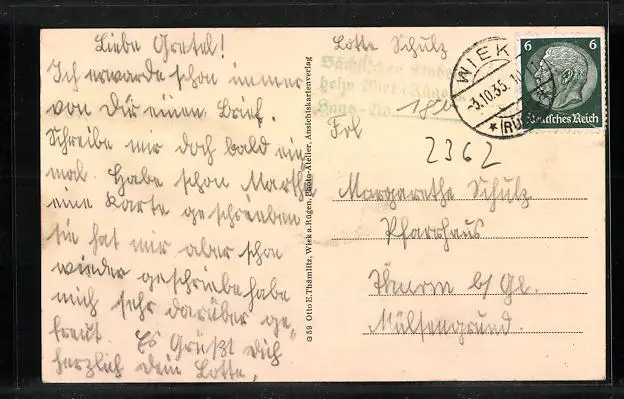 Liebe Gretel!
Ich erwarde schon immer
von Dir einen Brief.
Schreibe mir doch bald ein
mal. Habe schon Marthe
eine Karte geschrieben
sie hat mir aber schon
wieder geschriebe habe
mich sehr darüber ge-
freut. Es Grüßt Dich
herzlich dein Lotte,
G 59 Otto E. Thämlitz, Wiek a. Rügen, Photo-Atelier, Ansichtskartenverlag
Lotte Schulz
Sächsisches Kinder
heim Wiek (Rügen
Haus-No.
WIEK
-3.10.35.
* (RÜ
6 6
Deutsches Reich
Frl
2362
Margarethe Schulz
Pfarrhaus
Thurm b/ Gl.
Mülsengrund.